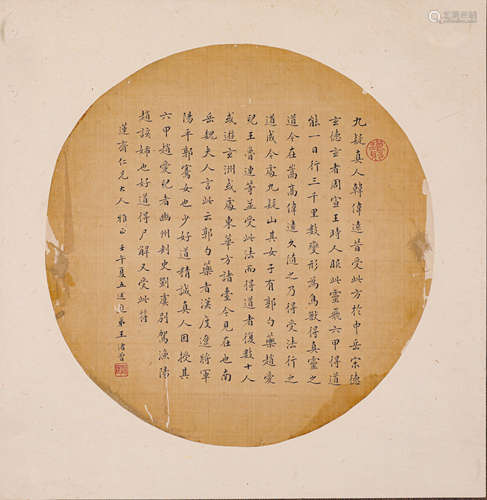 九疑真人韓偉遠昔受此方於中岳宋德
玄德玄者周宣王時人服此靈飛六甲得道
能一日行三千里數變形為鳥獸得真靈之
道今在嵩高偉遠久隨之乃得受法行之
道成今處九疑山其女子有郭勺藥趙愛
兒王魯連等並受此法而得道者復數十人
或遊玄洲或處東華方諸臺今見在也南
岳魏夫人言此云郭勺藥者漢度遼將軍
陽平郭騫女也少好道精誠真人因授其
六甲趙愛兒者幽州刺史劉虞別駕漁陽
趙該姊也好道得尸解又受此符
仁兄大人雅正 壬午夏五 弟王